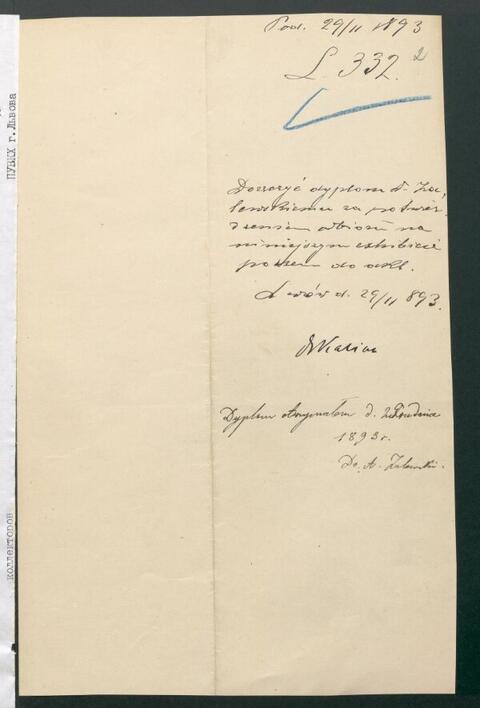 Pod. 29/11 1893
L. 332.
2
Doręczyć dyplom dr. Za-
lewskiemu za potwier-
dzeniem odbioru na
niniejszym exhibicie
poczem do akt.
Lwów d. 29/11 893.
Dyplom otrzymałem d. 2 Grudnia
1893 r.
Dr. A. Zalewski.
ПУВКХ г.Львова
коллекторов